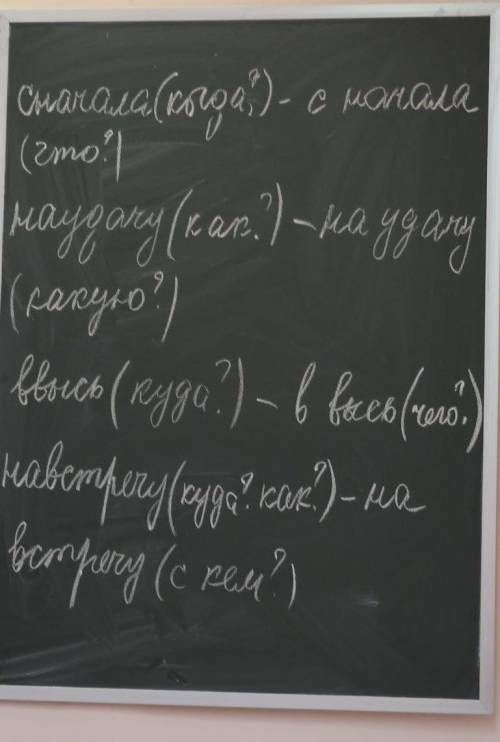 сначала (когда?) - с начала
(что?)
наудачу (как?) - на удачу
(какую?)
ввысь (куда?) - в высь (чего?)
навстречу (куда? как?) - на
встречу (с кем?)